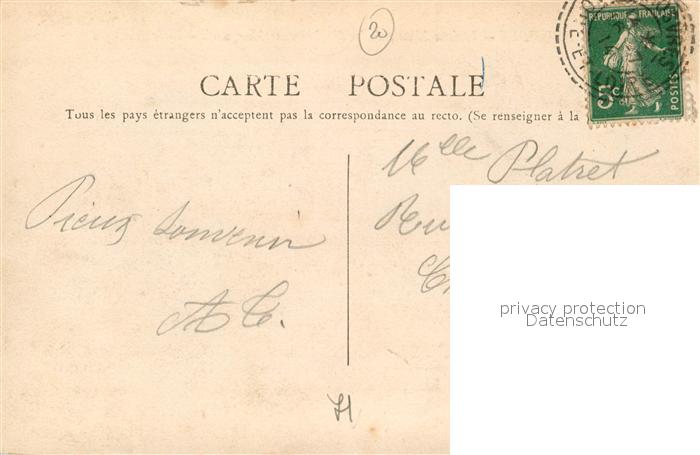 20
RÉPUBLIQUE FRANÇAISE
POSTES
5c
CARTE POSTALE
Tous les pays étrangers n'acceptent pas la correspondance au recto. (Se renseigner à la
Mlle Platret
Pieux souvenir
A C.
privacy protection
Datenschutz